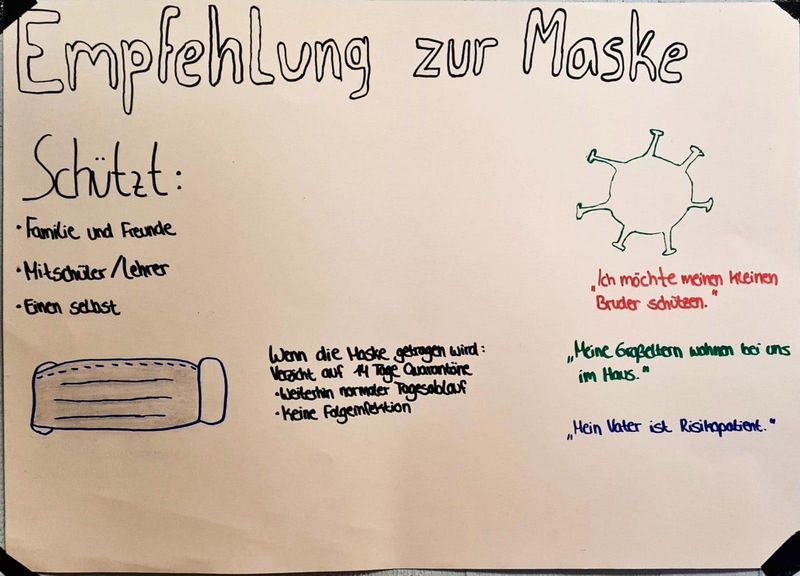 Empfehlung zur Maske
Schützt:
• Familie und Freunde
• Mitschüler/Lehrer
• Einen selbst
Wenn die Maske getragen wird:
Verzicht auf 14 Tage Quarantäne
• Weiterhin normaler Tagesablauf
• Keine Folgeinfektion
„Ich möchte meinen kleinen
Bruder schützen."
„Meine Großeltern wohnen bei uns
im Haus."
„Mein Vater ist Risikopatient."